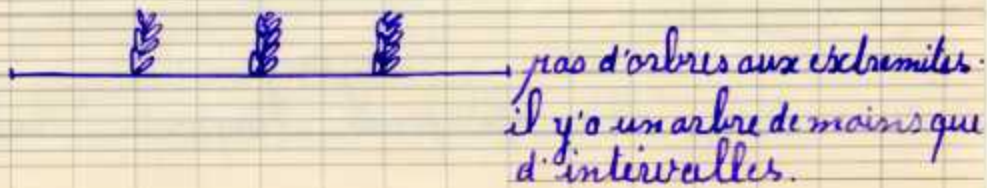 pas d'arbres aux extremités.
il y'a un arbre de moins que
d'intervalles.